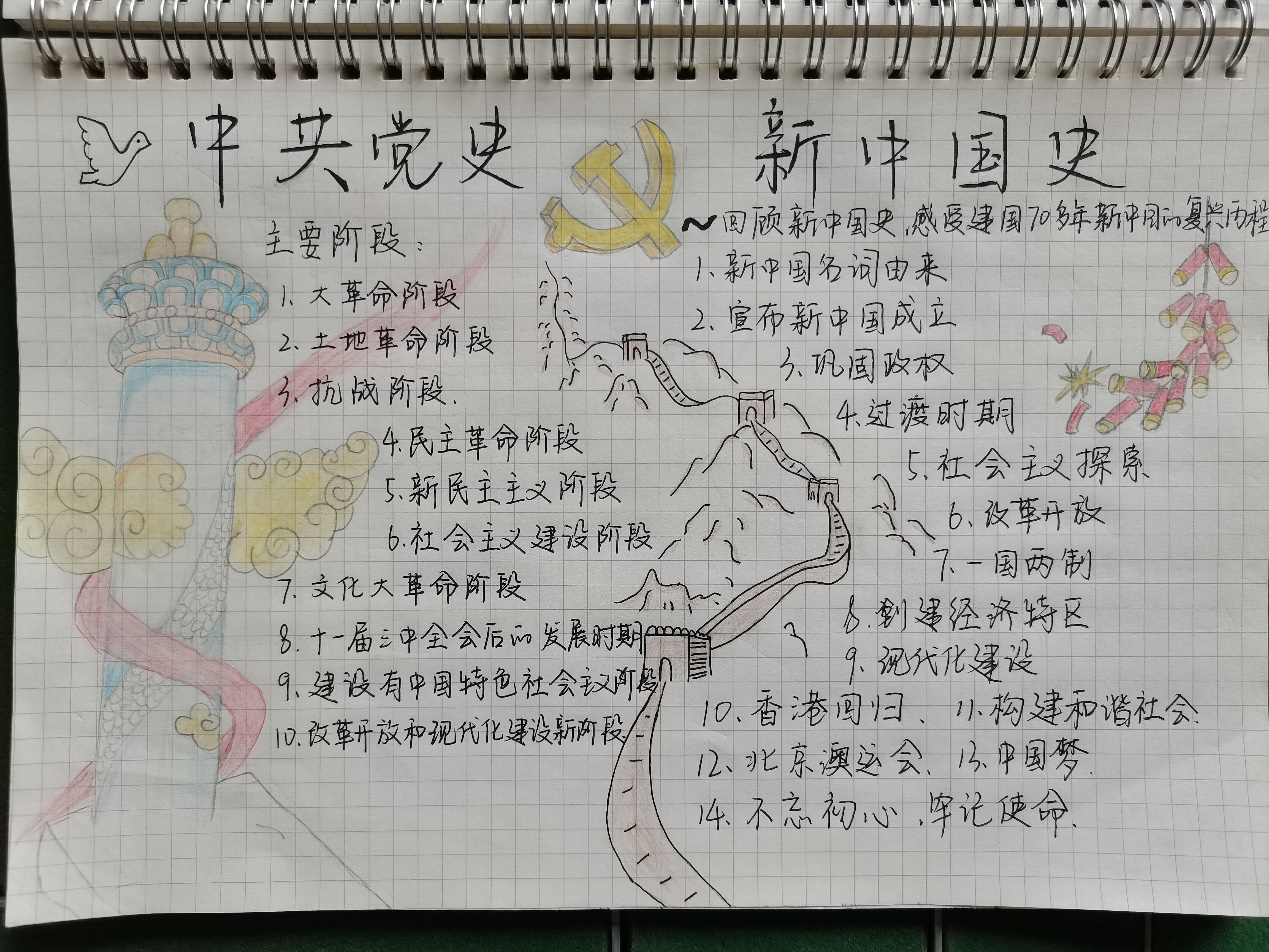 中共党史
主要阶段：
1. 大革命阶段
2. 土地革命阶段
3. 抗战阶段.
4. 民主革命阶段
5. 新民主主义阶段
6. 社会主义建设阶段
7. 文化大革命阶段
8. 十一届三中全会后的发展时期
9. 建设有中国特色社会主义阶段
10. 改革开放和现代化建设新阶段
新中国史
~回顾新中国史、感受建国70多年新中国的复兴历程
1. 新中国名词由来
2. 宣布新中国成立
3. 巩固政权
4. 过渡时期
5. 社会主义探索
6. 改革开放
7. 一国两制
8. 创建经济特区
9. 现代化建设
10. 香港回归、 11. 构建和谐社会.
12、北京澳运会、13. 中国梦.
14. 不忘初心、牢记使命、